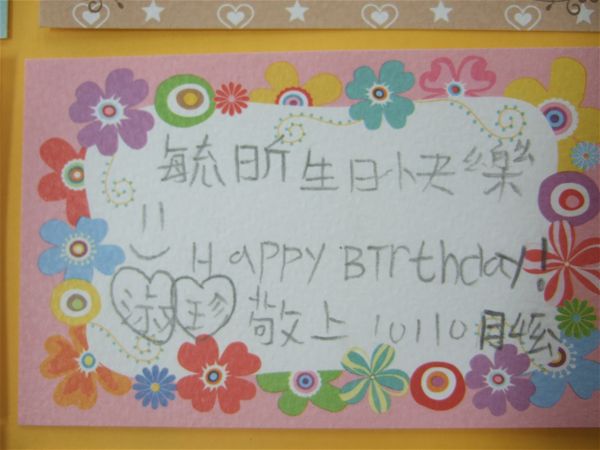 毓昕生日快樂
HAPPY BIrthday!
淑珍 敬上 10110